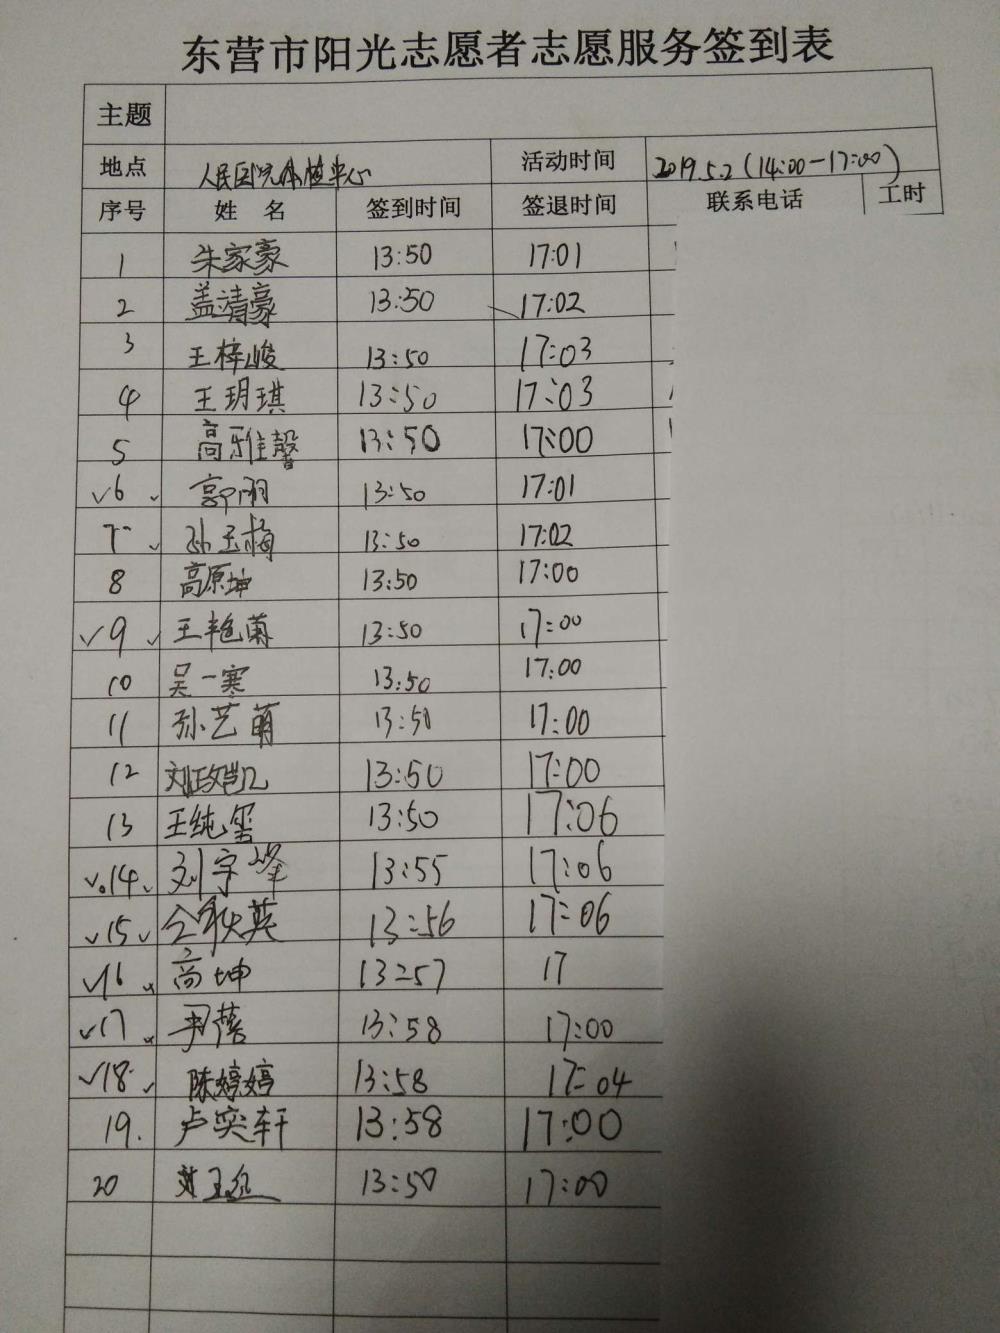 东营市阳光志愿者志愿服务签到表
主题
地点 人民医院体检中心 活动时间 2019.5.2(14:00-17:00)
序号 姓名 签到时间 签退时间 联系电话 工时
1 朱家豪 13:50 17:01
2 盖靖豪 13:50 17:02
3 王梓峻 13:50 17:03
4 王玥琪 13:50 17:03
5 高雅馨 13:50 17:00
✓6 ✓ 郭丽 13:50 17:01
7 ✓ 孙玉梅 13:50 17:02
8 高原坤 13:50 17:00
✓9 ✓ 王艳菊 13:50 17:00
10 吴一寒 13:50 17:00
11 孙艺萌 13:50 17:00
12 刘政凯 13:50 17:00
13 王纯玺 13:50 17:06
✓14 ✓ 刘宇峰 13:55 17:06
✓15 ✓ 仝秋英 13:56 17:06
✓16 高坤 13:57 17
✓17 尹蓓 13:58 17:00
✓18 ✓ 陈婷婷 13:58 17:04
19. 卢奕轩 13:58 17:00
20 13:50 17:00